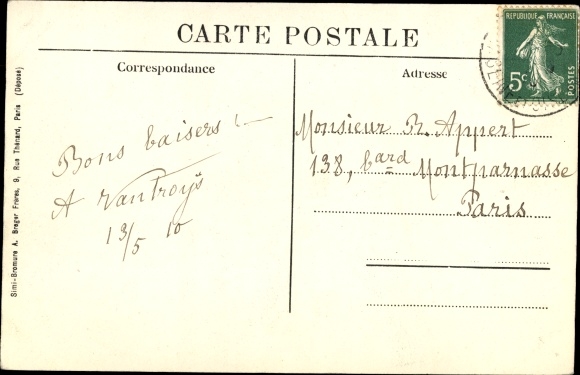 CARTE POSTALE
RÉPUBLIQUE FRANÇAISE
5c
POSTES
Correspondance
Adresse
Bons baisers !
A VanTroys
13/5 10
Monsieur R. Appert
138, bard Montparnasse
Paris
Simi-Bromure A. Breger Frères, 9, Rue Thénard, Paris (Déposé)